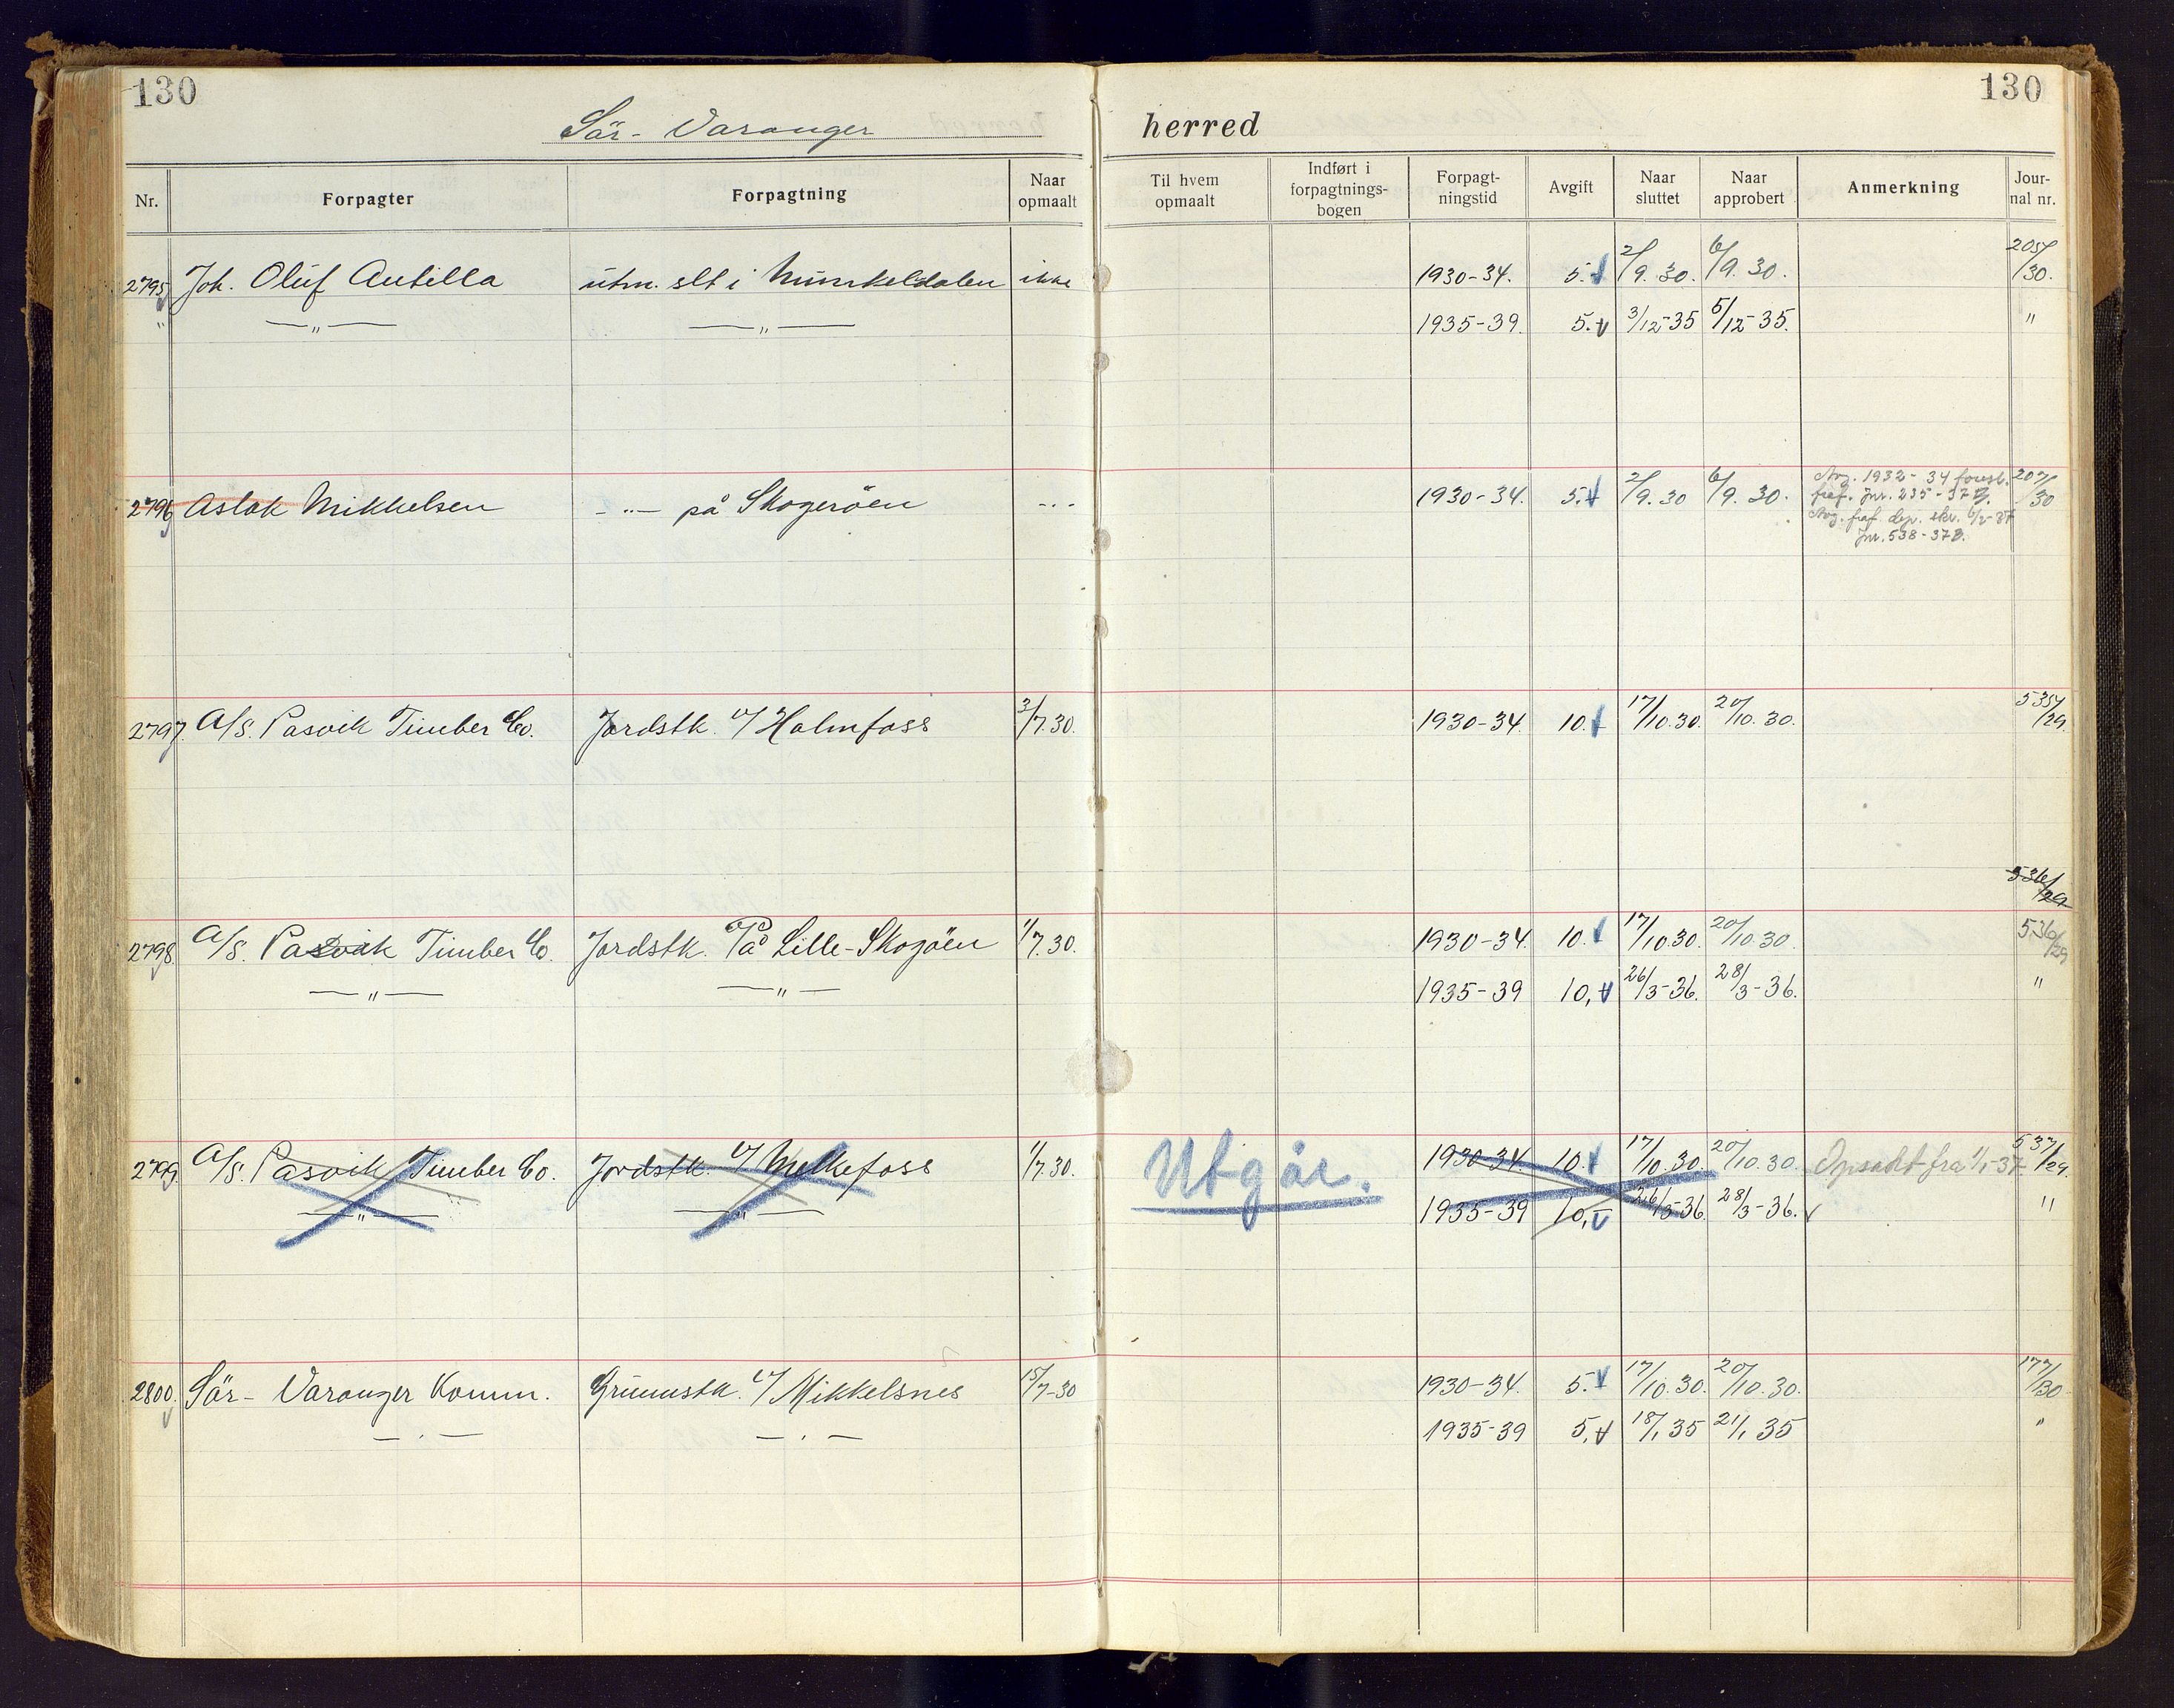 130
130
Sör-Varanger herred
Nr. Forpagter Forpagtning Naar opmaalt Til hvem opmaalt Indført i forpagtnings-bogen Forpagt-ningstid Avgift Naar sluttet Naar approbert Anmerkning Jour-nal nr.
2795 Joh. Oluf Antilla utm. slt i Munkeldalen ikke 1930-34. 5. 2/9. 30. 6/9. 30. 205/30.
" —"— —"— 1935-39. 5. 3/12-35 5/12-35. "
2796 Aslak Mikkelsen -"- på Skogeröen -"- 1930-34. 5. 2/9. 30 6/9. 30. 207/30
Avg. 1932-34
Jnr. 235-37
Avg. dep. skr.
Jnr. 538-37
2797. A/S. Pasvik Timber Co. Jordstk. v/ Holmfoss 3/7.30. 1930-34 10. 17/10.30. 20/10. 30. 535/29.
536/29
2798. A/S. Pasvik Timber Co. Jordstk. På Lille-Skogöen 1/7.30. 1930-34. 10. 17/10.30. 20/10.30. 536/29
—"— —"— 1935-39 10, 26/3-36. 28/3-36. "
2799. A/S. Pasvik Timber Co. Jordstk. v/ Melkefoss 1/7.30. Utgår. 1930-34. 10. 17/10.30. 20/10.30. Opsakt fra 1/1-37 537/29.
—"— —"— 1935-39 10, 26/3-36. 28/3-36. "
2800. Sör-Varanger Komm. Grunnstk. v/ Mikkelsnes 15/7-30 1930-34. 5. 17/10.30. 20/10.30. 177/30
— . — — . — 1935-39 5, 18/1 35 21/1 35 "